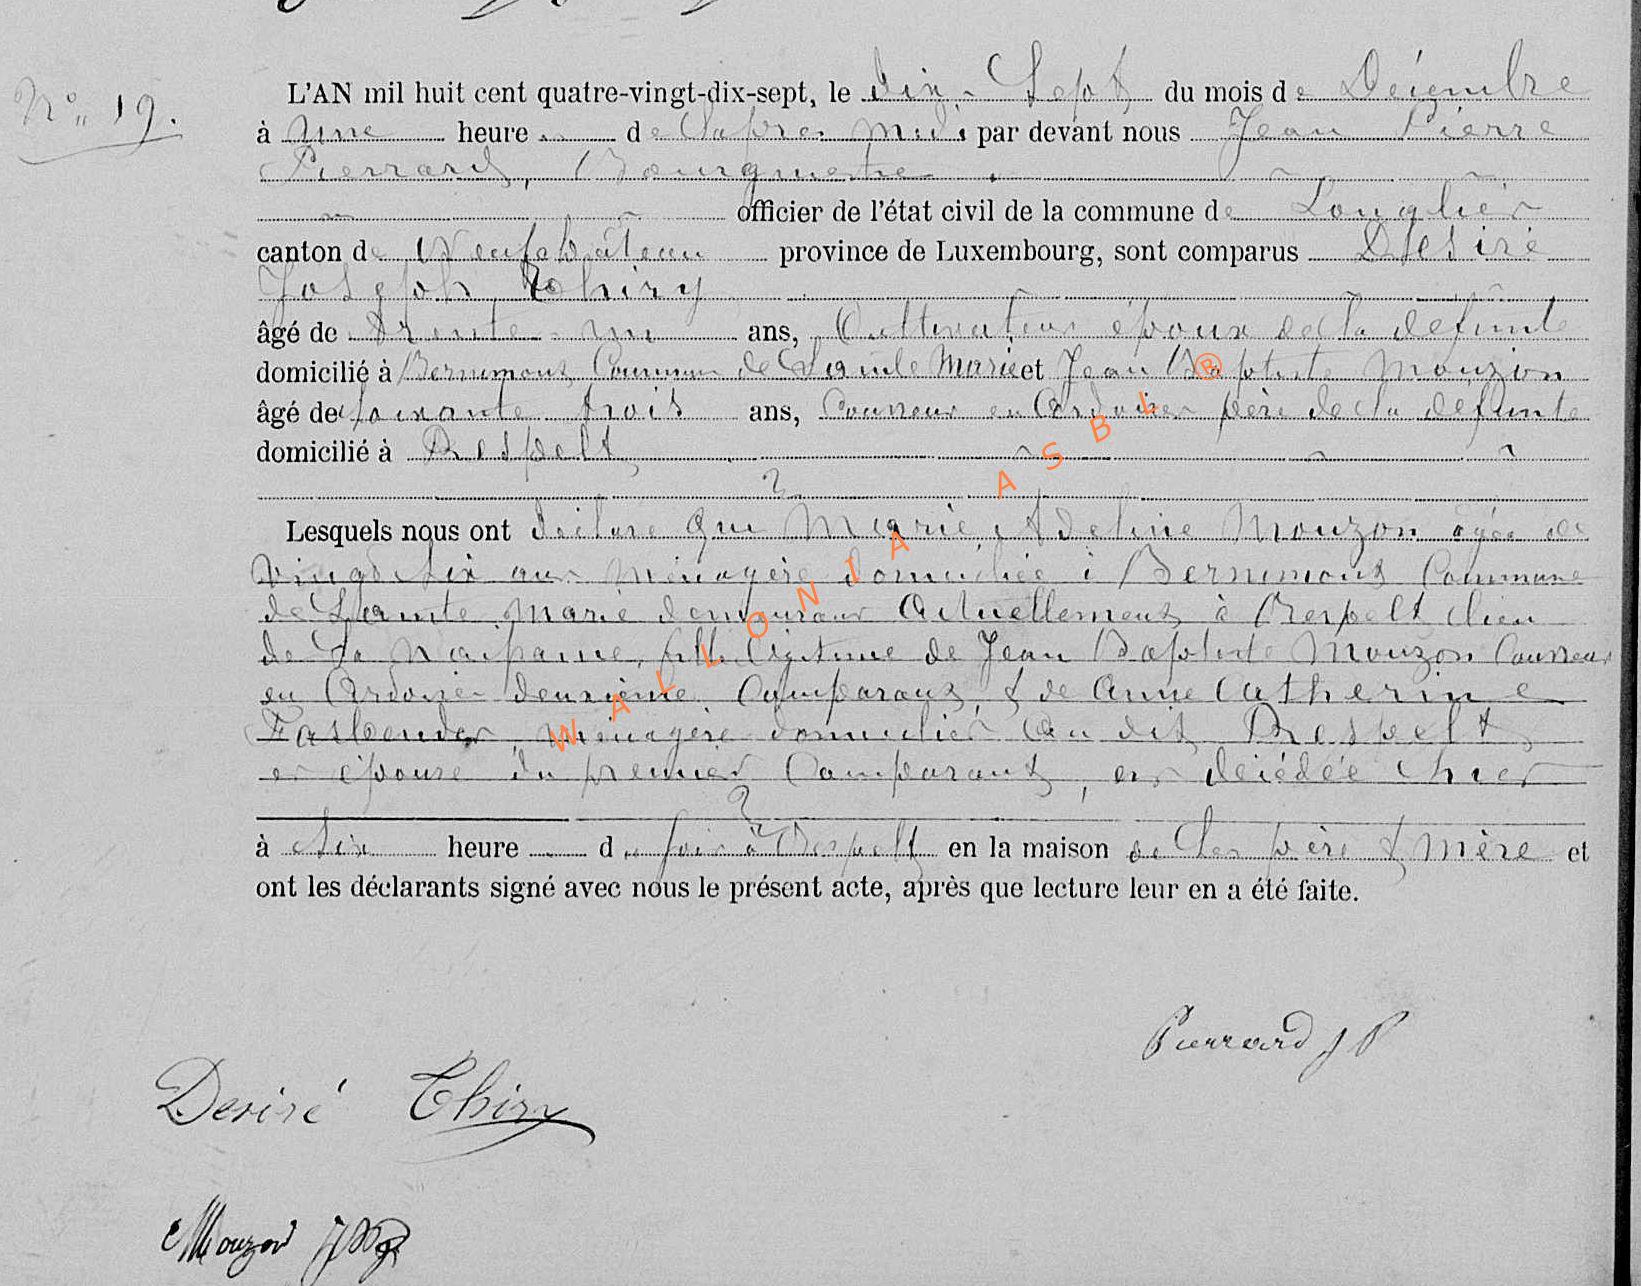 N° 19.
L'AN mil huit cent quatre-vingt-dix-sept, le dix-Sept du mois de Décembre
à une heure de l'après midi par devant nous Jean Pierre
Pierrard, Bourgmestre
officier de l'état civil de la commune de Longlier
canton de Neufchâteau province de Luxembourg, sont comparus Désiré
Joseph Thiry
âgé de trente-un ans, Cultivateur époux de la défunte
domicilié à Bernimont Commune de Sainte Marie et Jean Baptiste Mouzon
âgé de soixante trois ans, Couvreur en Ardoises père de la défunte
domicilié à Respelt
Lesquels nous ont déclaré que Marie Adeline Mouzon agée de
vingt Six ans Ménagère domiciliée à Bernimont Commune
de Sainte Marie demeurant Actuellement à Respelt lieu
de Sa Naissance, fille légitime de Jean Baptiste Mouzon Couvreur
en Ardoises deuxième Comparant, & de Anne Catherine
Fasbender ménagère domiciliés au dit Respelt
et épouse du premier Comparant, est décédée hier
à Six heure du soir à Respelt en la maison de Ses père & Mère et
ont les déclarants signé avec nous le présent acte, après que lecture leur en a été faite.
Pierrard J P
Desiré Thiry
Mouzon JB
WALLONIA ASBL ®